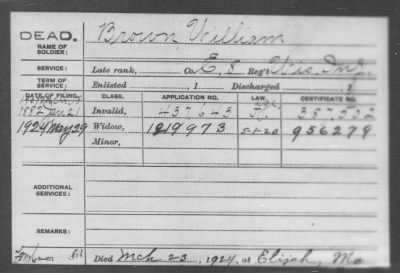 DEAD.
NAME OF SOLDIER:
Brown, William
SERVICE:
Late rank, Co. E, 8 Reg't Wis. Inf.
TERM OF SERVICE:
Enlisted , 1 Discharged , 1
DATE OF FILING. CLASS. APPLICATION NO. LAW. CERTIFICATE NO.
1882 Jan 21 Invalid, 437,643 387,532
1924 May 29 Widow, 1219973 5-1-20 956279
Minor,
ADDITIONAL SERVICES:
REMARKS:
Died Mch 23, 1924, at Elijah, Mo